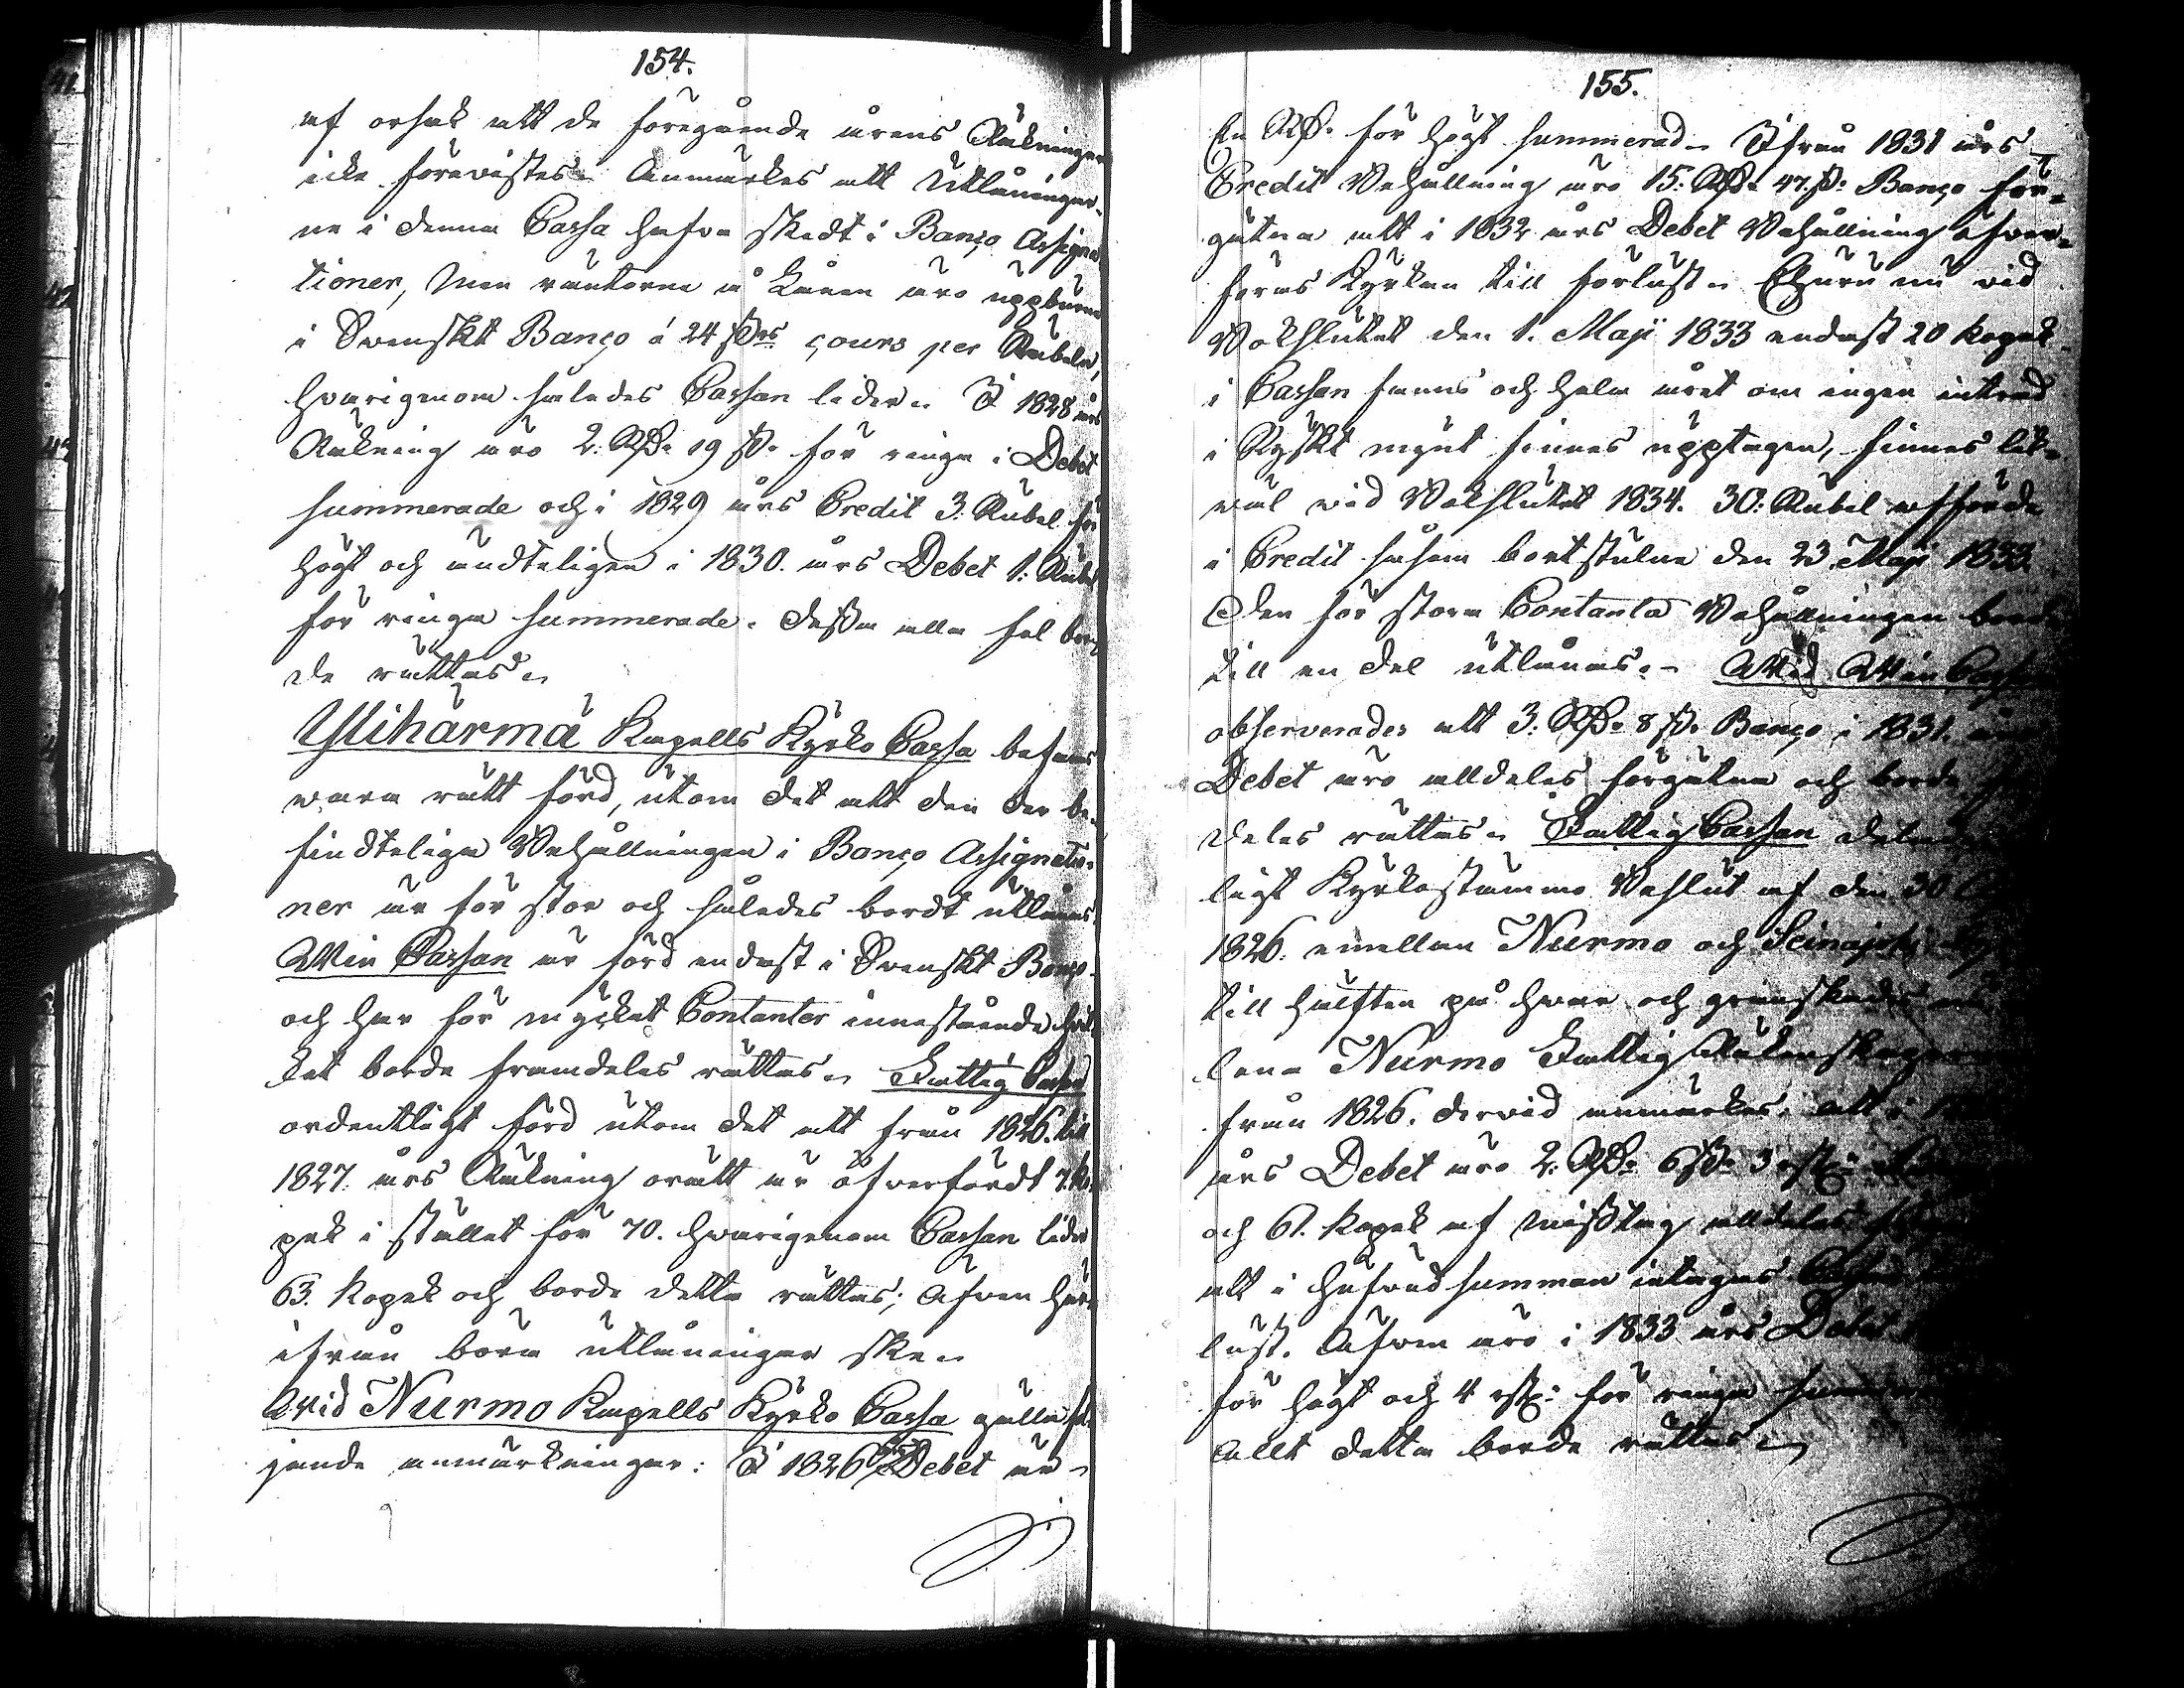 154.
af orsak att de föregående årens Räkningar
icke förevistes. Anmärkes att Utlåningar-
ne i denna Cassa hafva skedt i Banco Assigna
tioner, men räntorne å Lånen äro uppburne
i Svenskt Banco á 24 sk. cours per Rubeln,
hvarigenom således Cassan lider. I 1828 års
Räkning äro 2. Rd. 19 sk. för ringa i Debet
summerade och i 1829 års Credit 3: Rubel för
högt och ändteligen i 1830. års Debet 1: Rubel
för ringa summerade. Dessa alla fel bor
de rättas.
Ylihärmä Kapells Kyrko Cassa befans
vara rätt förd, utom det att den der be-
findteliga Behållningen i Banco Assignatio-
ner är för stor och således bordt utlånas,
Win Cassan är förd endast i Svenskt Banco
och har för mycket Contanter innestående hvil
ket borde framdeles rättas. Fattig Cassan
ordentligt förd utom det att från 1826. till
1827. års Räkning orätt är öfverfördt 7. ko-
pek i stället för 70. hvarigenom Cassan lider
63. Kopek och borde detta rättas; Äfven här
ifrån böra utlåningar ske.
Wid Nurmo Kapells Kyrko Cassa gälla föl
jande anmärkningar: I 1826 års Debet är
155.
En Rd. för högt summerad. Ifrån 1831 års
Credit Behållning äro 15: Rd. 47. sk: Banco för-
gätna att i 1832 års Debet Behållning öfver-
föras Kyrkan till förlust. Ehuru nu vid
Bokslutet den 1. Maji 1833 endast 20 kopek
i Cassan fanns och hela året om ingen intrad
i Ryskt mynt finnes upptagen, finnes lik-
väl vid Bokslutet 1834. 30: Rubel afförde
i Credit såsom bortstulne den 23 Maji 1833.
Den för stora Contanta Behållningen borde
till en del utlånas. Wid Win Cassan
observerades att 3: Rd. 8 sk. Banco i 1831. års
Debet äro alldeles förgätna och borde
deles rättas. Fattig Cassan
ligt Kyrkostämmo Beslut af den 30
1826. emellan Nurmo och Seinäjoki
till hälften på hvar och granskades
lena Nurmo Fattig Räkenskaperne
från 1826. dervid anmärkes: att i
års Debet äro 2: Rd. 6 sk. 3 rst:
och 61. Kopek af misstag alldeles
att i hufvud summan intagas Cassan
lust. Äfven äro i 1833 års Debet
för högt och 4 rst: för ringa
Allt detta borde rättas.